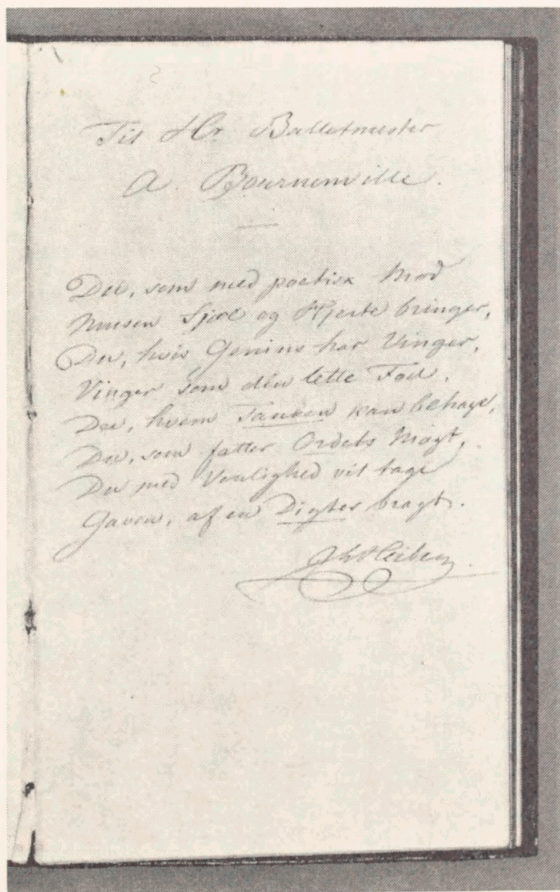 Til Hr. Balletmester
A. Bournonville.
Du, som med poetisk Mod
Musen Sjæl og Hjerte bringer,
Du, hvis Genius har Vinger,
Vinger som din lette Fod.
Du, hvem Tanken kan behage,
Du, som fatter Ordets Magt,
Du med Venlighed vil tage
Gaven, af en Digter bragt.
J. L. Heiberg.